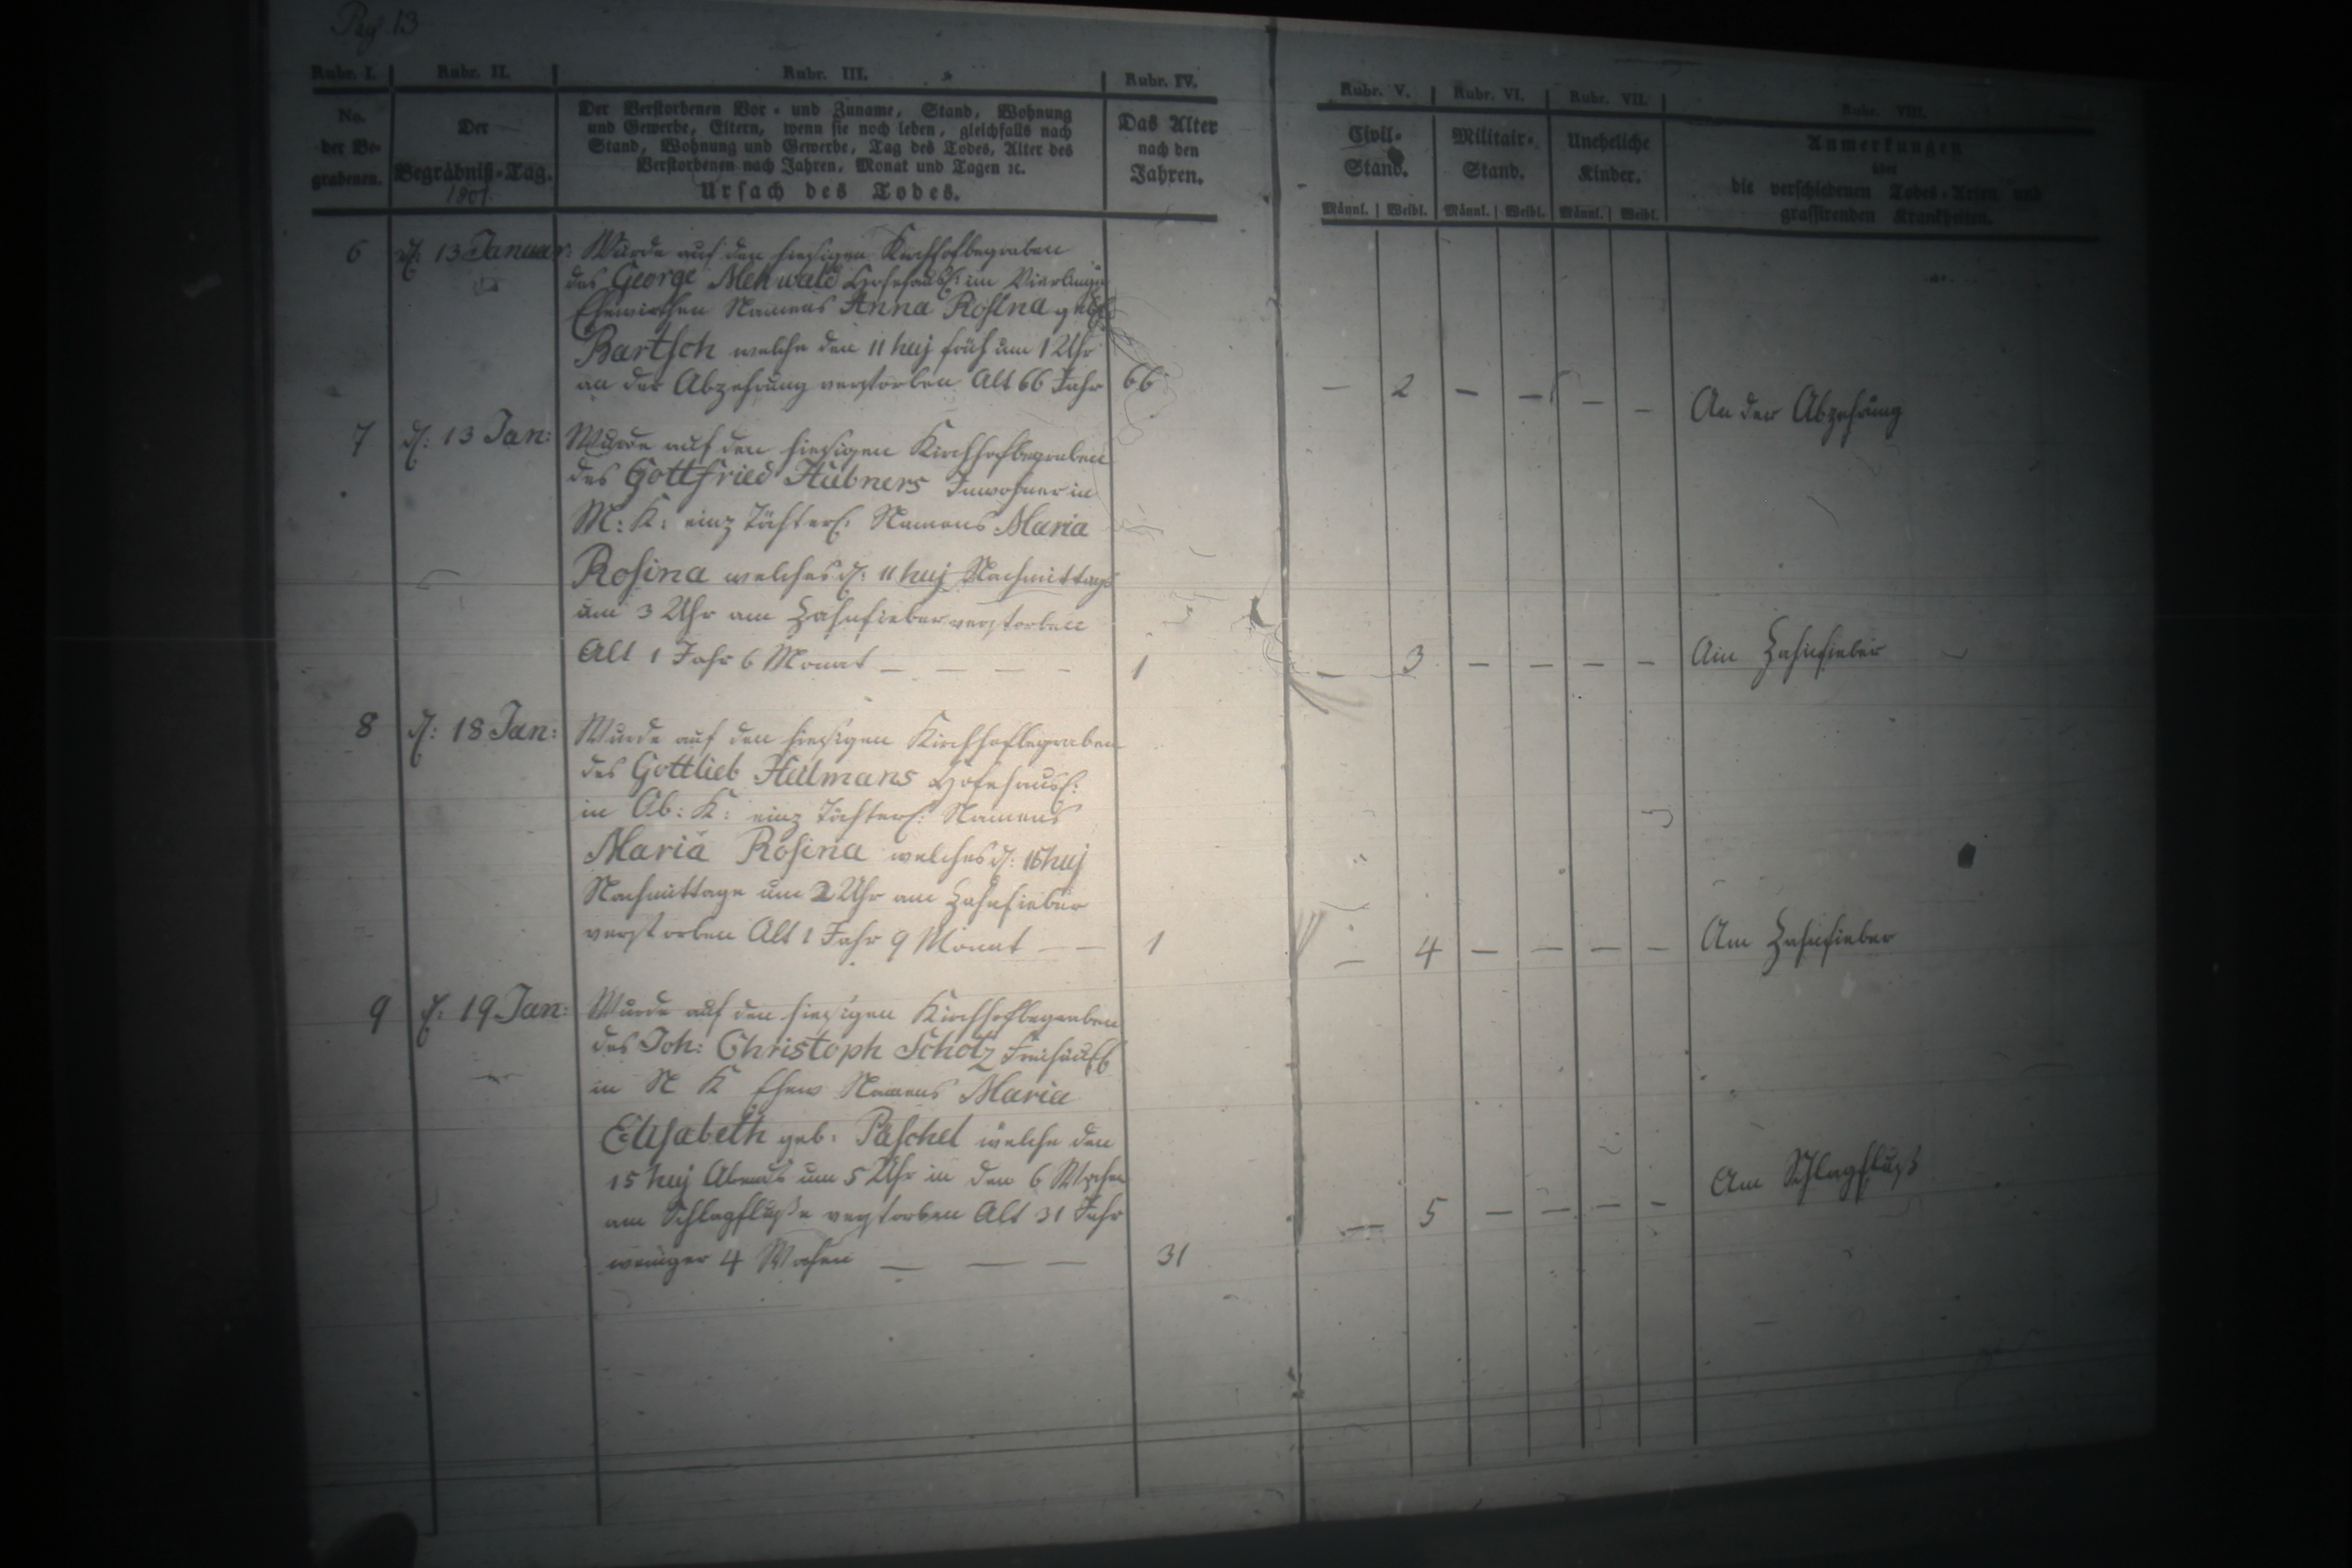 Pag. 13
Rubr. I. Rubr. II. Rubr. III. Rubr. IV. Rubr. V. Rubr. VI. Rubr. VII. Rubr. VIII.
No. der Begrabenen.
Der Begräbniß-Tag.
1801.
Der Verstorbenen Vor- und Zuname, Stand, Wohnung
und Gewerbe, Eltern, wenn sie noch leben, gleichfalls nach
Stand, Wohnung und Gewerbe, Tag des Todes, Alter des
Verstorbenen nach Jahren, Monat und Tagen ꝛc.
Ursach des Todes.
Das Alter
nach den
Jahren.
Civil-
Stand.
Militair-
Stand.
Uneheliche
Kinder.
Männl. Weibl. Männl. Weibl. Männl. Weibl.
Anmerkungen
über
die verschiedenen Todes-Arten und
grassirenden Krankheiten.
6 d: 13 Januar: Wurde auf den hiesigen Kirchhof begraben
des George Mehwald Hofehäusl: im
Ehewirthin Namens Anna Rosina geb:
Bartsch welche den 11 huj früh um 1 Uhr
an der Abzehrung verstorben Alt 66 Jahr 66 — 2 — — — — An der Abzehrung
7 d: 13 Jan: Wurde auf den hiesigen Kirchhof begraben
des Gottfried Hübners Inwohner in
M: K: einz Töchterl: Namens Maria
Rosina welches d: 11 huj Nachmittags
um 3 Uhr am Zahnfieber verstorben
Alt 1 Jahr 6 Monat — — — — 1 — 3 — — — — Am Zahnfieber
8 d: 18 Jan: Wurde auf den hiesigen Kirchhof begraben
des Gottlieb Heilmans Hofehäusl:
in Ob: K: einz Töchterl: Namens
Maria Rosina welches d: 16 huj
Nachmittage um 2 Uhr am Zahnfieber
verstorben Alt 1 Jahr 9 Monat — — 1 — 4 — — — — Am Zahnfieber
9 d: 19 Jan: Wurde auf den hiesigen Kirchhof begraben
des Joh: Christoph Scholz Freihäusl
in N K Ehew Namens Maria
Elisabeth geb: Päschel welche den
15 huj Abends um 5 Uhr in den 6 Wochen
am Schlagfluße verstorben Alt 31 Jahr
weniger 4 Wochen — — — 31 — 5 — — — — Am Schlagfluß